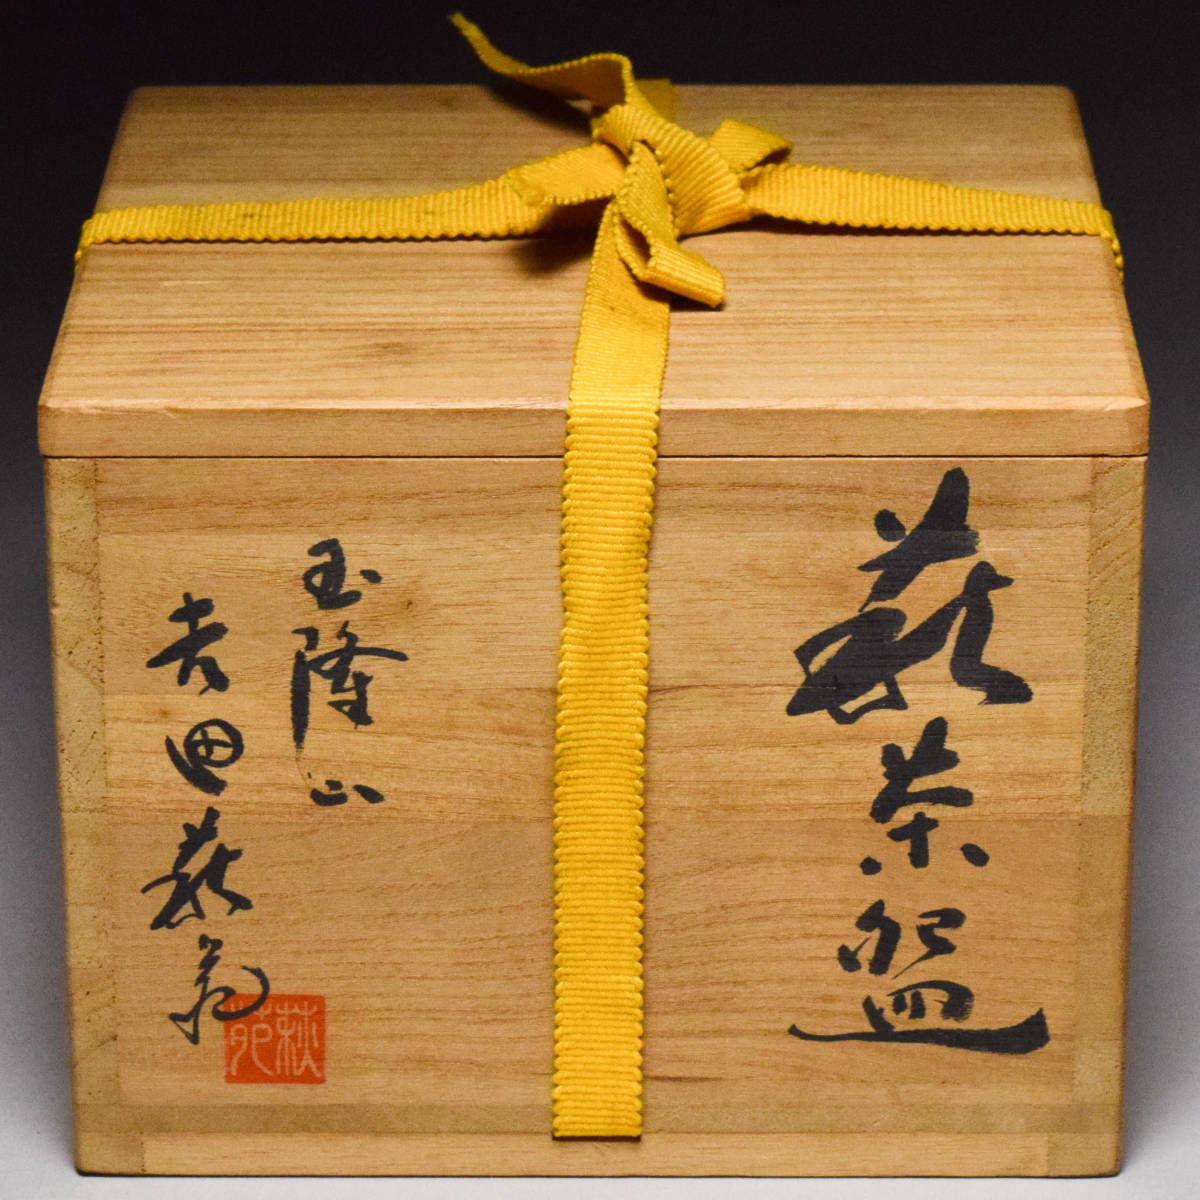 萩茶盌
玉隆山
吉田萩苑
萩苑